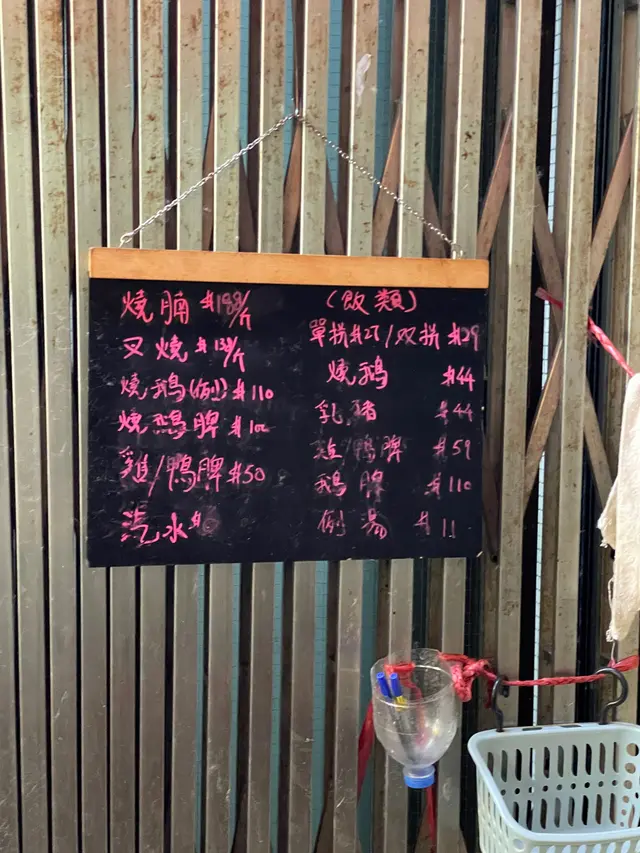 燒腩 $188/斤
叉燒 $138/斤
燒鵝(例) $110
燒鵝脾 $100
雞/鴨脾 $50
汽水
(飯類)
單拼 $27/双拼 $29
燒鵝 $44
乳豬 $44
鴨脾 $59
鵝脾 $110
例湯 $11